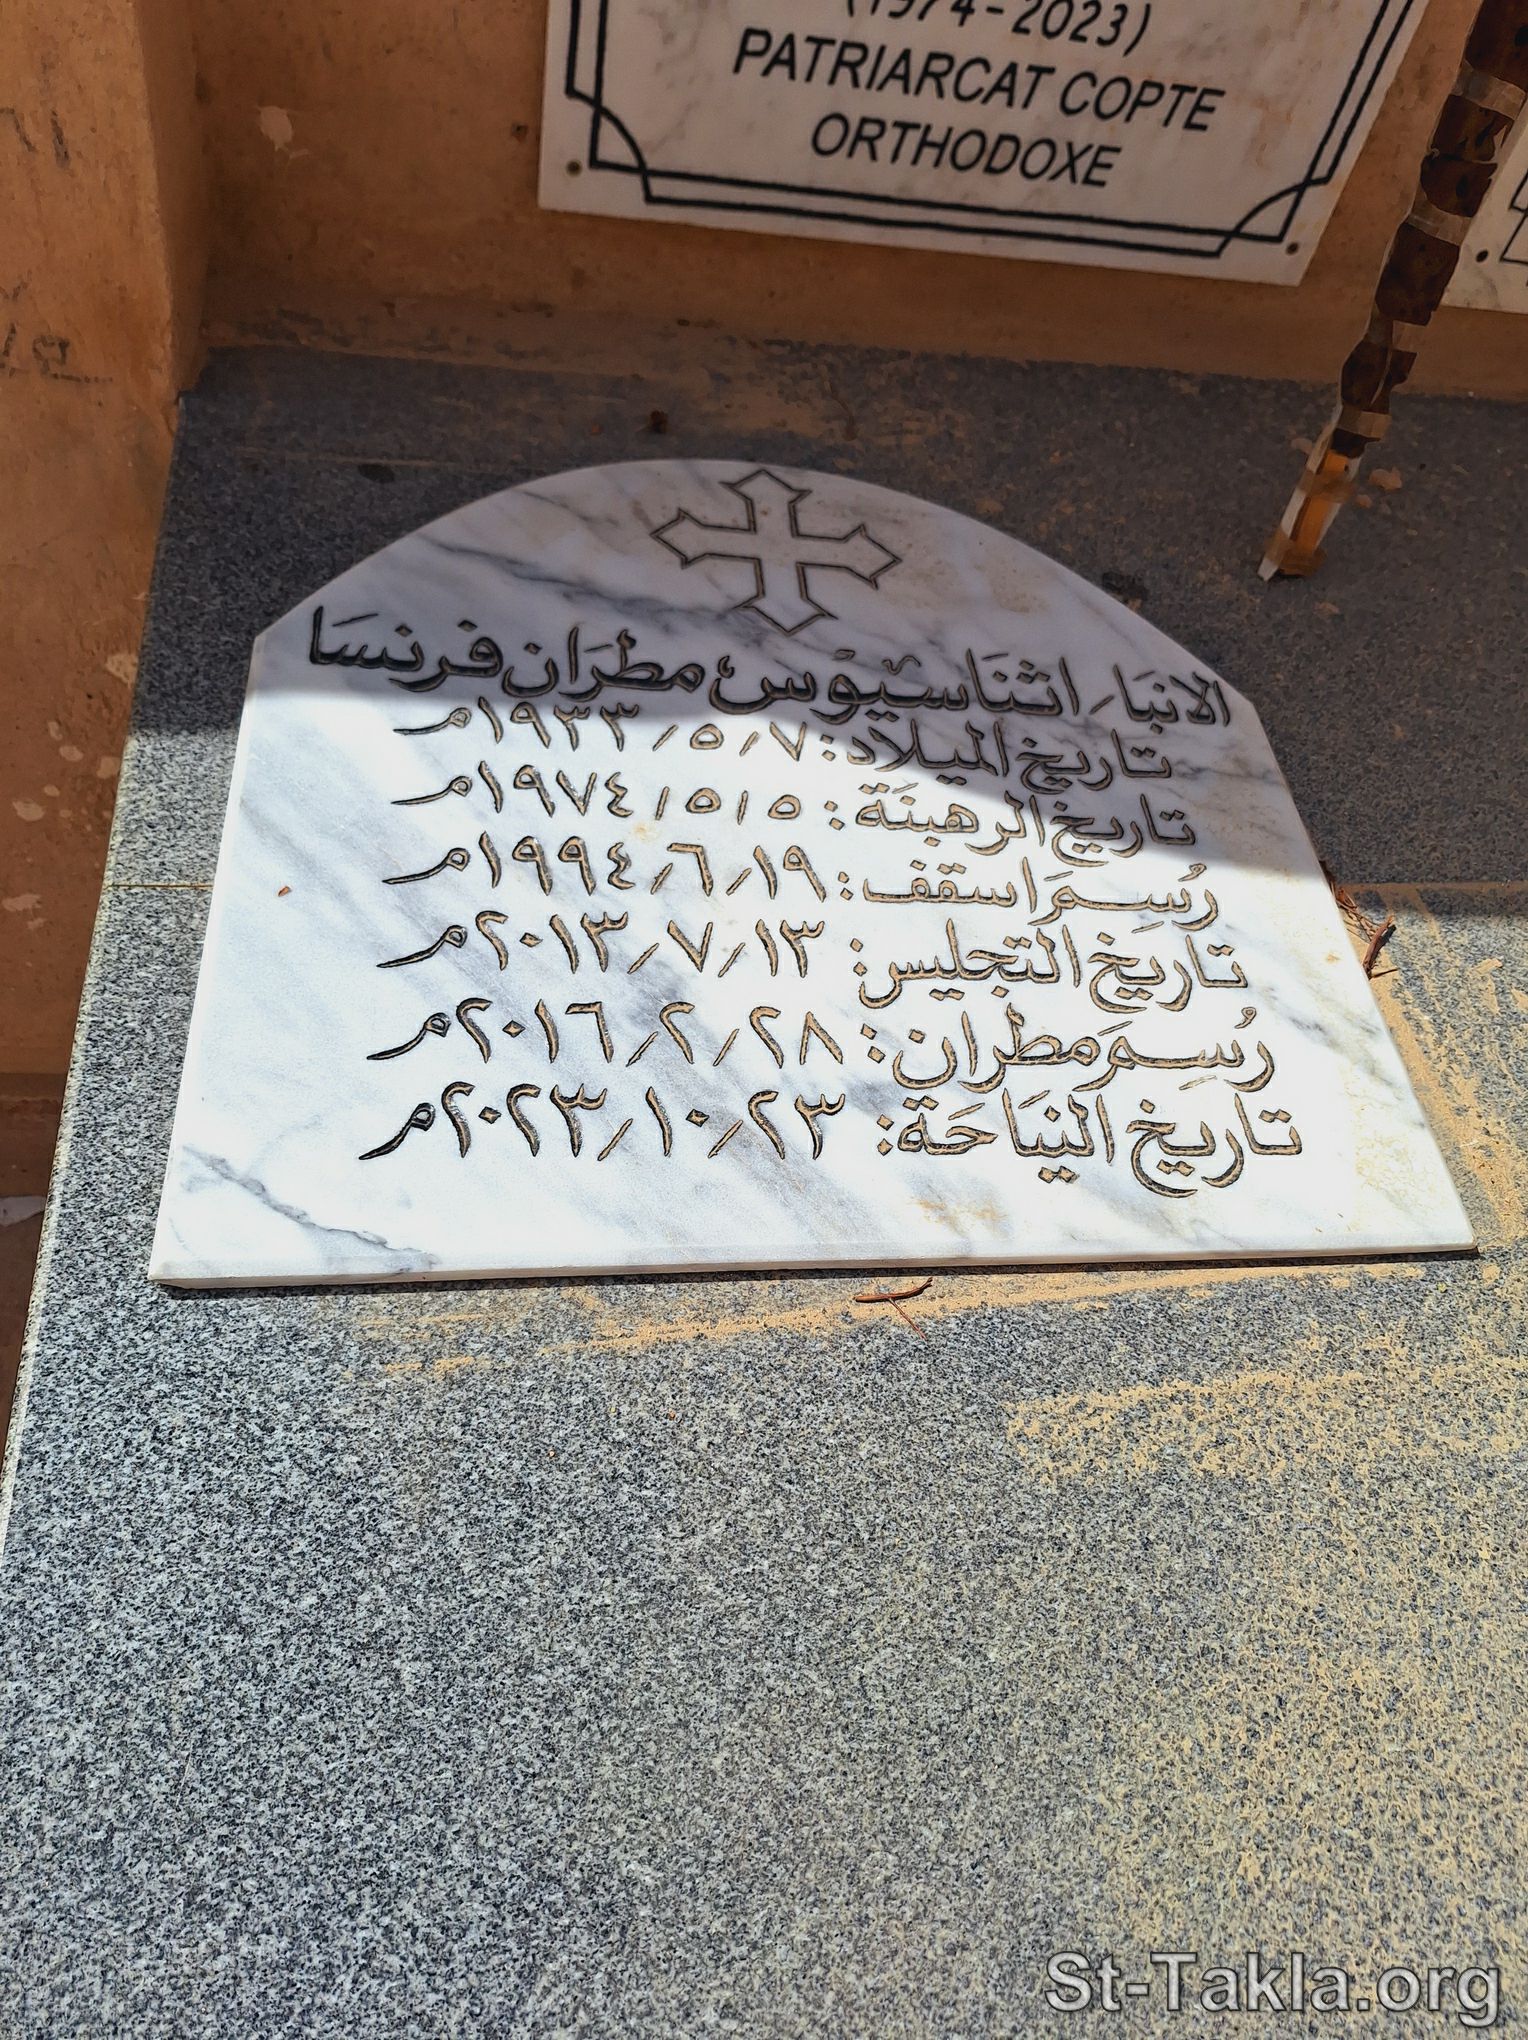 (1974-2023)
PATRIARCAT COPTE
ORTHODOXE
الانبَا ء اثنَاسيُوْسْ مطرَان فرنسَا
تاريخ الميلاد: ٧ / ٥ / ١٩٣٣م
تاريخ الرهبنَة: ٥ / ٥ / ١٩٧٤م
رُسِمَ اسقف: ١٩ / ٦ / ١٩٩٤م
تاريخ التجليس: ١٣ / ٧ / ٢٠١٣م
رُسِمَ مطران: ٢٨ / ٢ / ٢٠١٦م
تاريخ النيَاحَة: ٢٣ / ١٠ / ٢٠٢٣م
St-Takla.org